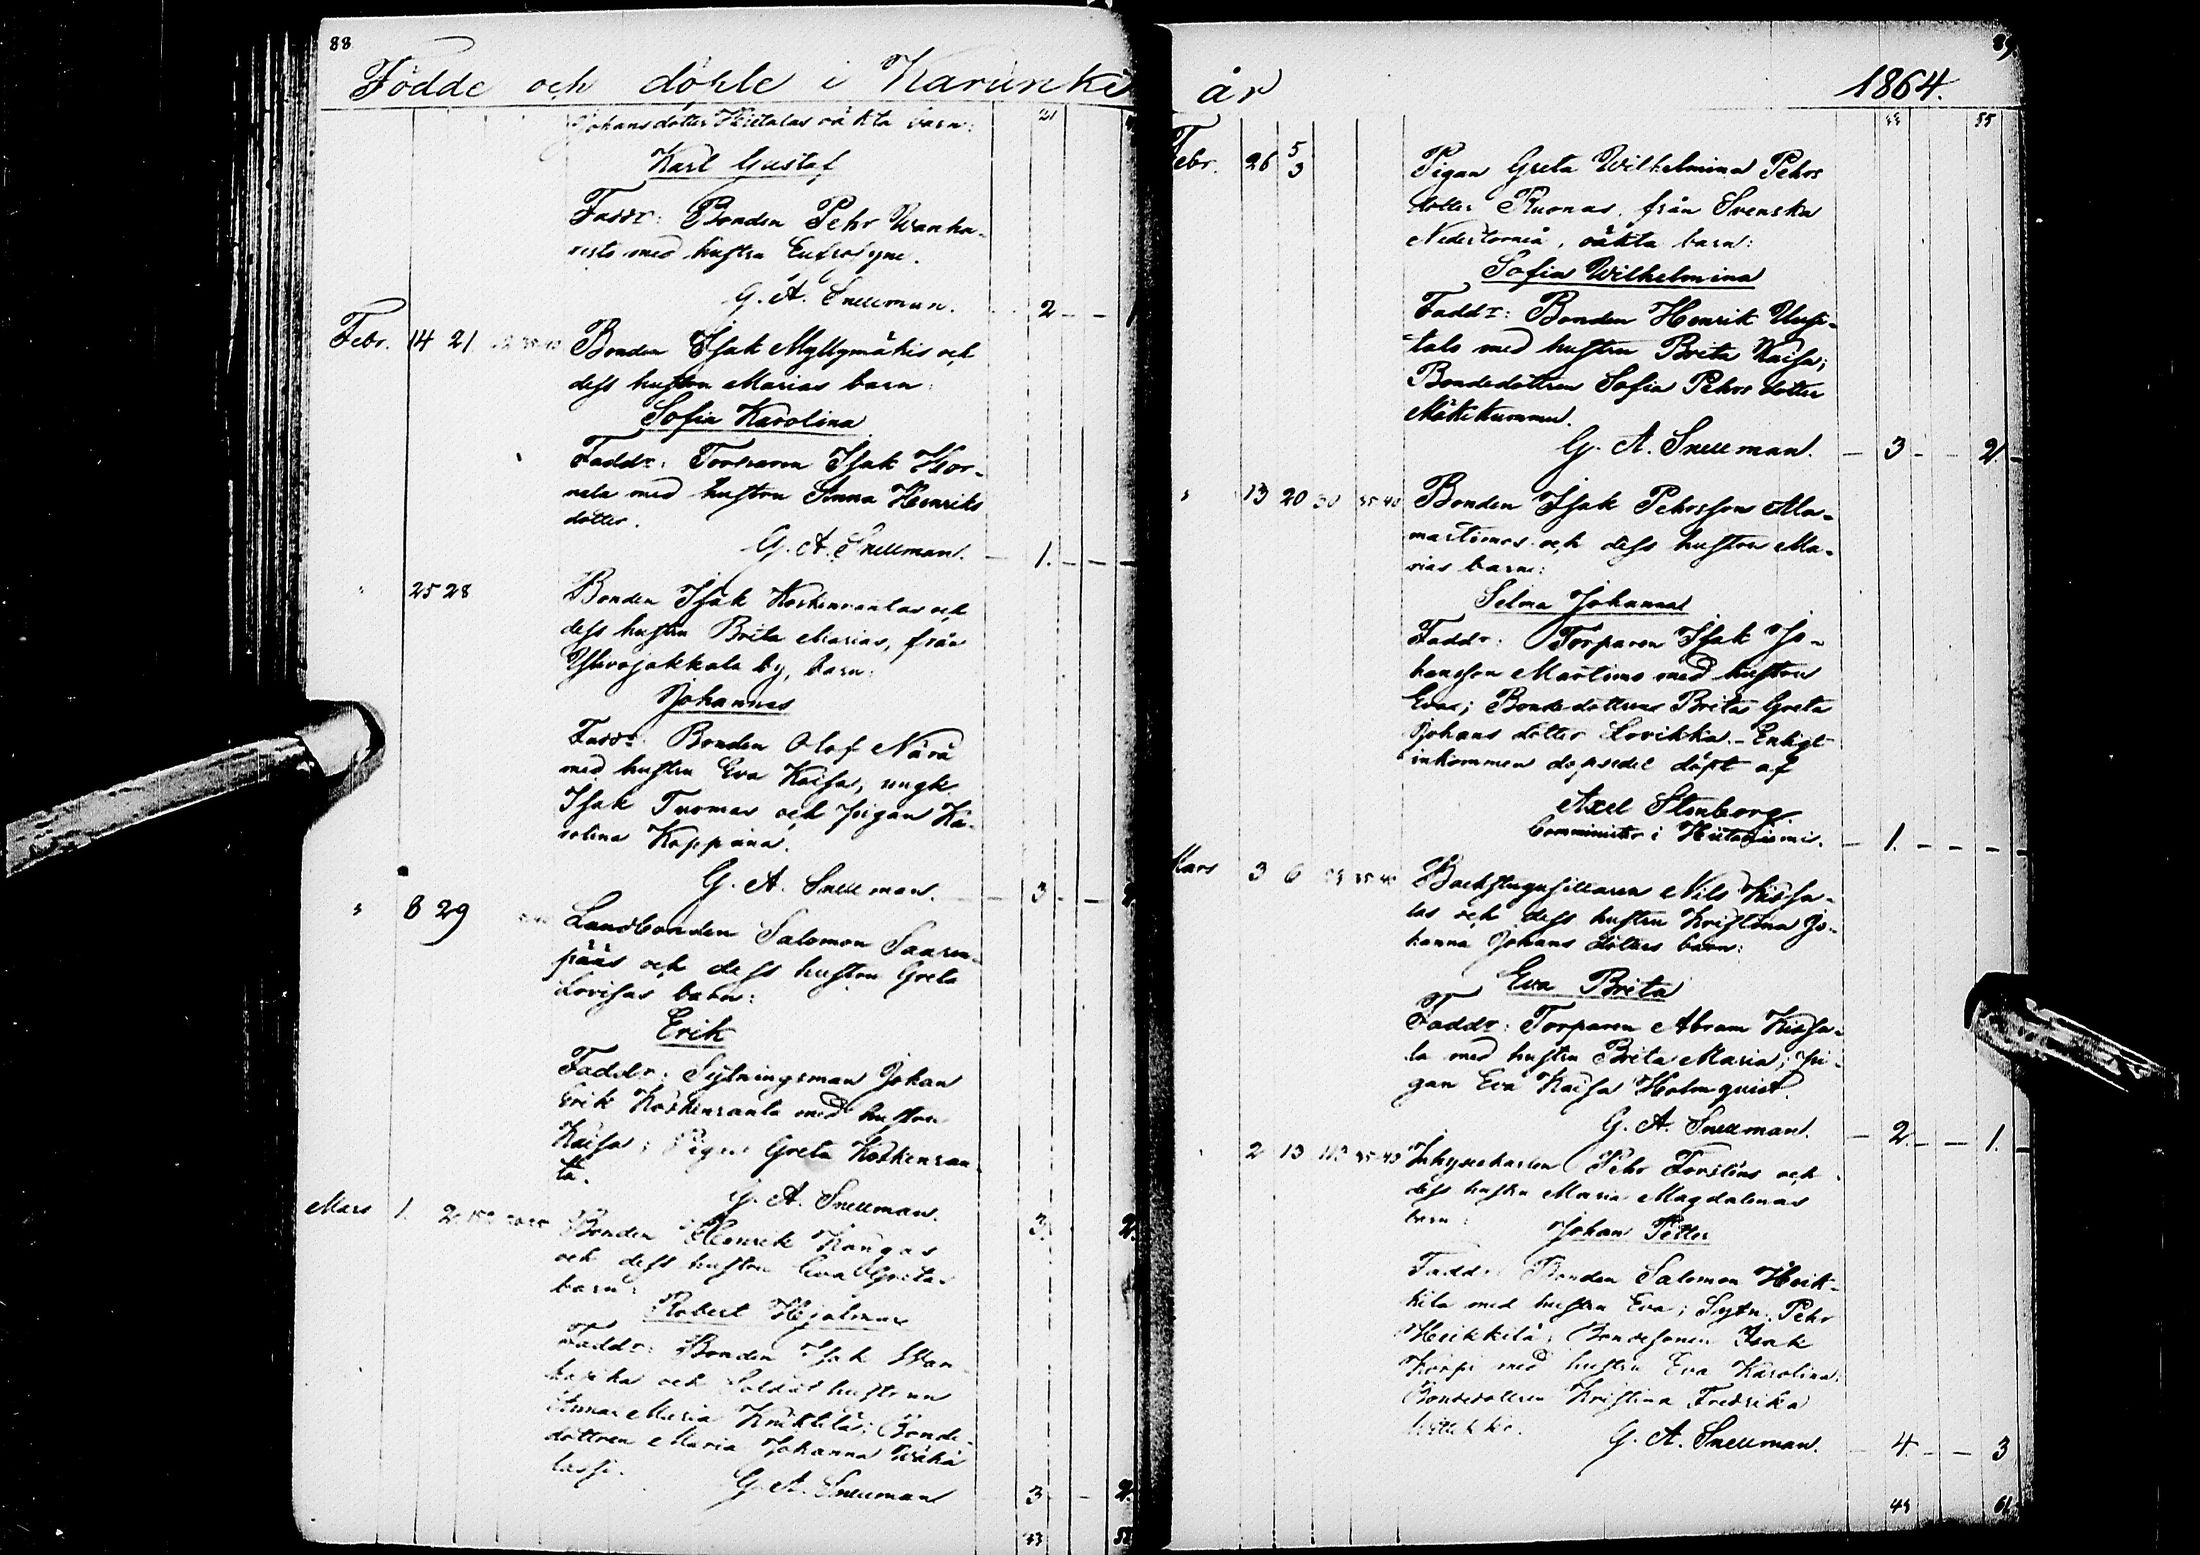 88
Födde och döple i Karunki
Johansdotter Hietalas oäkta barn:
21
Karl Gustaf
Faddr: Bonden Pehr Wanha-
risto med hustru Eufrosyne.
G. A. Snellman. 2
Febr. 14 21 Bonden Isak Myllymäkis och
dess hustru Marias barn:
Sofia Karolina
Faddr: Torparen Isak
nela med hustru Anna Henriks
dotter.
G. A. Snellman. 1.
" 25 28 Bonden Isak Koskenrantas och
dess hustru Brita Marias, från
Ylivojakkala by, barn:
Johannes
Faddr: Bonden Olof Närä
med hustru Eva Kaisa, yngk.
Isak Tuomas och pigan Ka-
rolina Koppana.
G. A. Snellman. 3
" 8 29 Landbonden Salomon Saaren-
pääs och dess hustru Greta
Lovisas barn:
Erik
Faddr: Sytningsman Johan
Erik Koskenranta med hustru
Kaisa; Pigan Greta Koskenran-
ta.
G. A. Snellman. 3. 2.
Mars 1. 2 Bonden Henrik Kangas
och dess hustru Eva Gretas
barn:
Robert Hjalmar
Faddr: Bonden Isak Wan-
hapiha och Soldat hustrun
Anna Maria Knihtilä; Bonde-
dottren Maria Johanna Wähä
lassi.
G. A. Snellman 3 2.
33 55
89
år 1864.
33 55
Febr. 26 5/3 Pigan Greta Wilhelmina Pehrs
dotter Ruonas, från Svenska
Nedertorneå, oäkta barn:
Sofia Wilhelmina
Faddr: Bonden Henrik Uusi-
talo med hustru Brita Kaisa;
Bondedottren Sofia Pehrs dotter
Mäkikummu.
G. A. Snellman. 3 2
" 13 20 30 35-40 Bonden Isak Pehrssons Ala-
martimos och dess hustru Ma-
rias barn:
Selma Johanna
Faddr: Torparen Isak Jo-
hansson Martimo med hustru
Eva; Bondedottren Brita Greta
Johans dotter Lovikka. - Enligt
inkommen dopsedel döpt af
Axel Stenborg
Comminister i Hietaniemi. 1.
Mars 3 6 Backstugusittaren Nils Kissa-
las och dess hustru Kristina Jo-
hanna Johans dotters barn:
Eva Brita
Faddr: Torparen Abram Kissa-
la med hustru Brita Maria; pi-
gan Eva Kaisa Holmquist.
G. A. Snellman. 2. 1.
" 2 13 35-40 Inhyseskarlen Pehr Forslins och
dess hustru Maria Magdalenas
barn:
Johan Petter
Faddr: Bonden Salomon Heik-
kilä med hustru Eva; Sytn. Pehr
Heikkilä; Bondesonen Isak
Korpi med hustru Eva Karolina;
Bondedottren Kristina Fredrika
G. A. Snellman. 4. 3
43 61